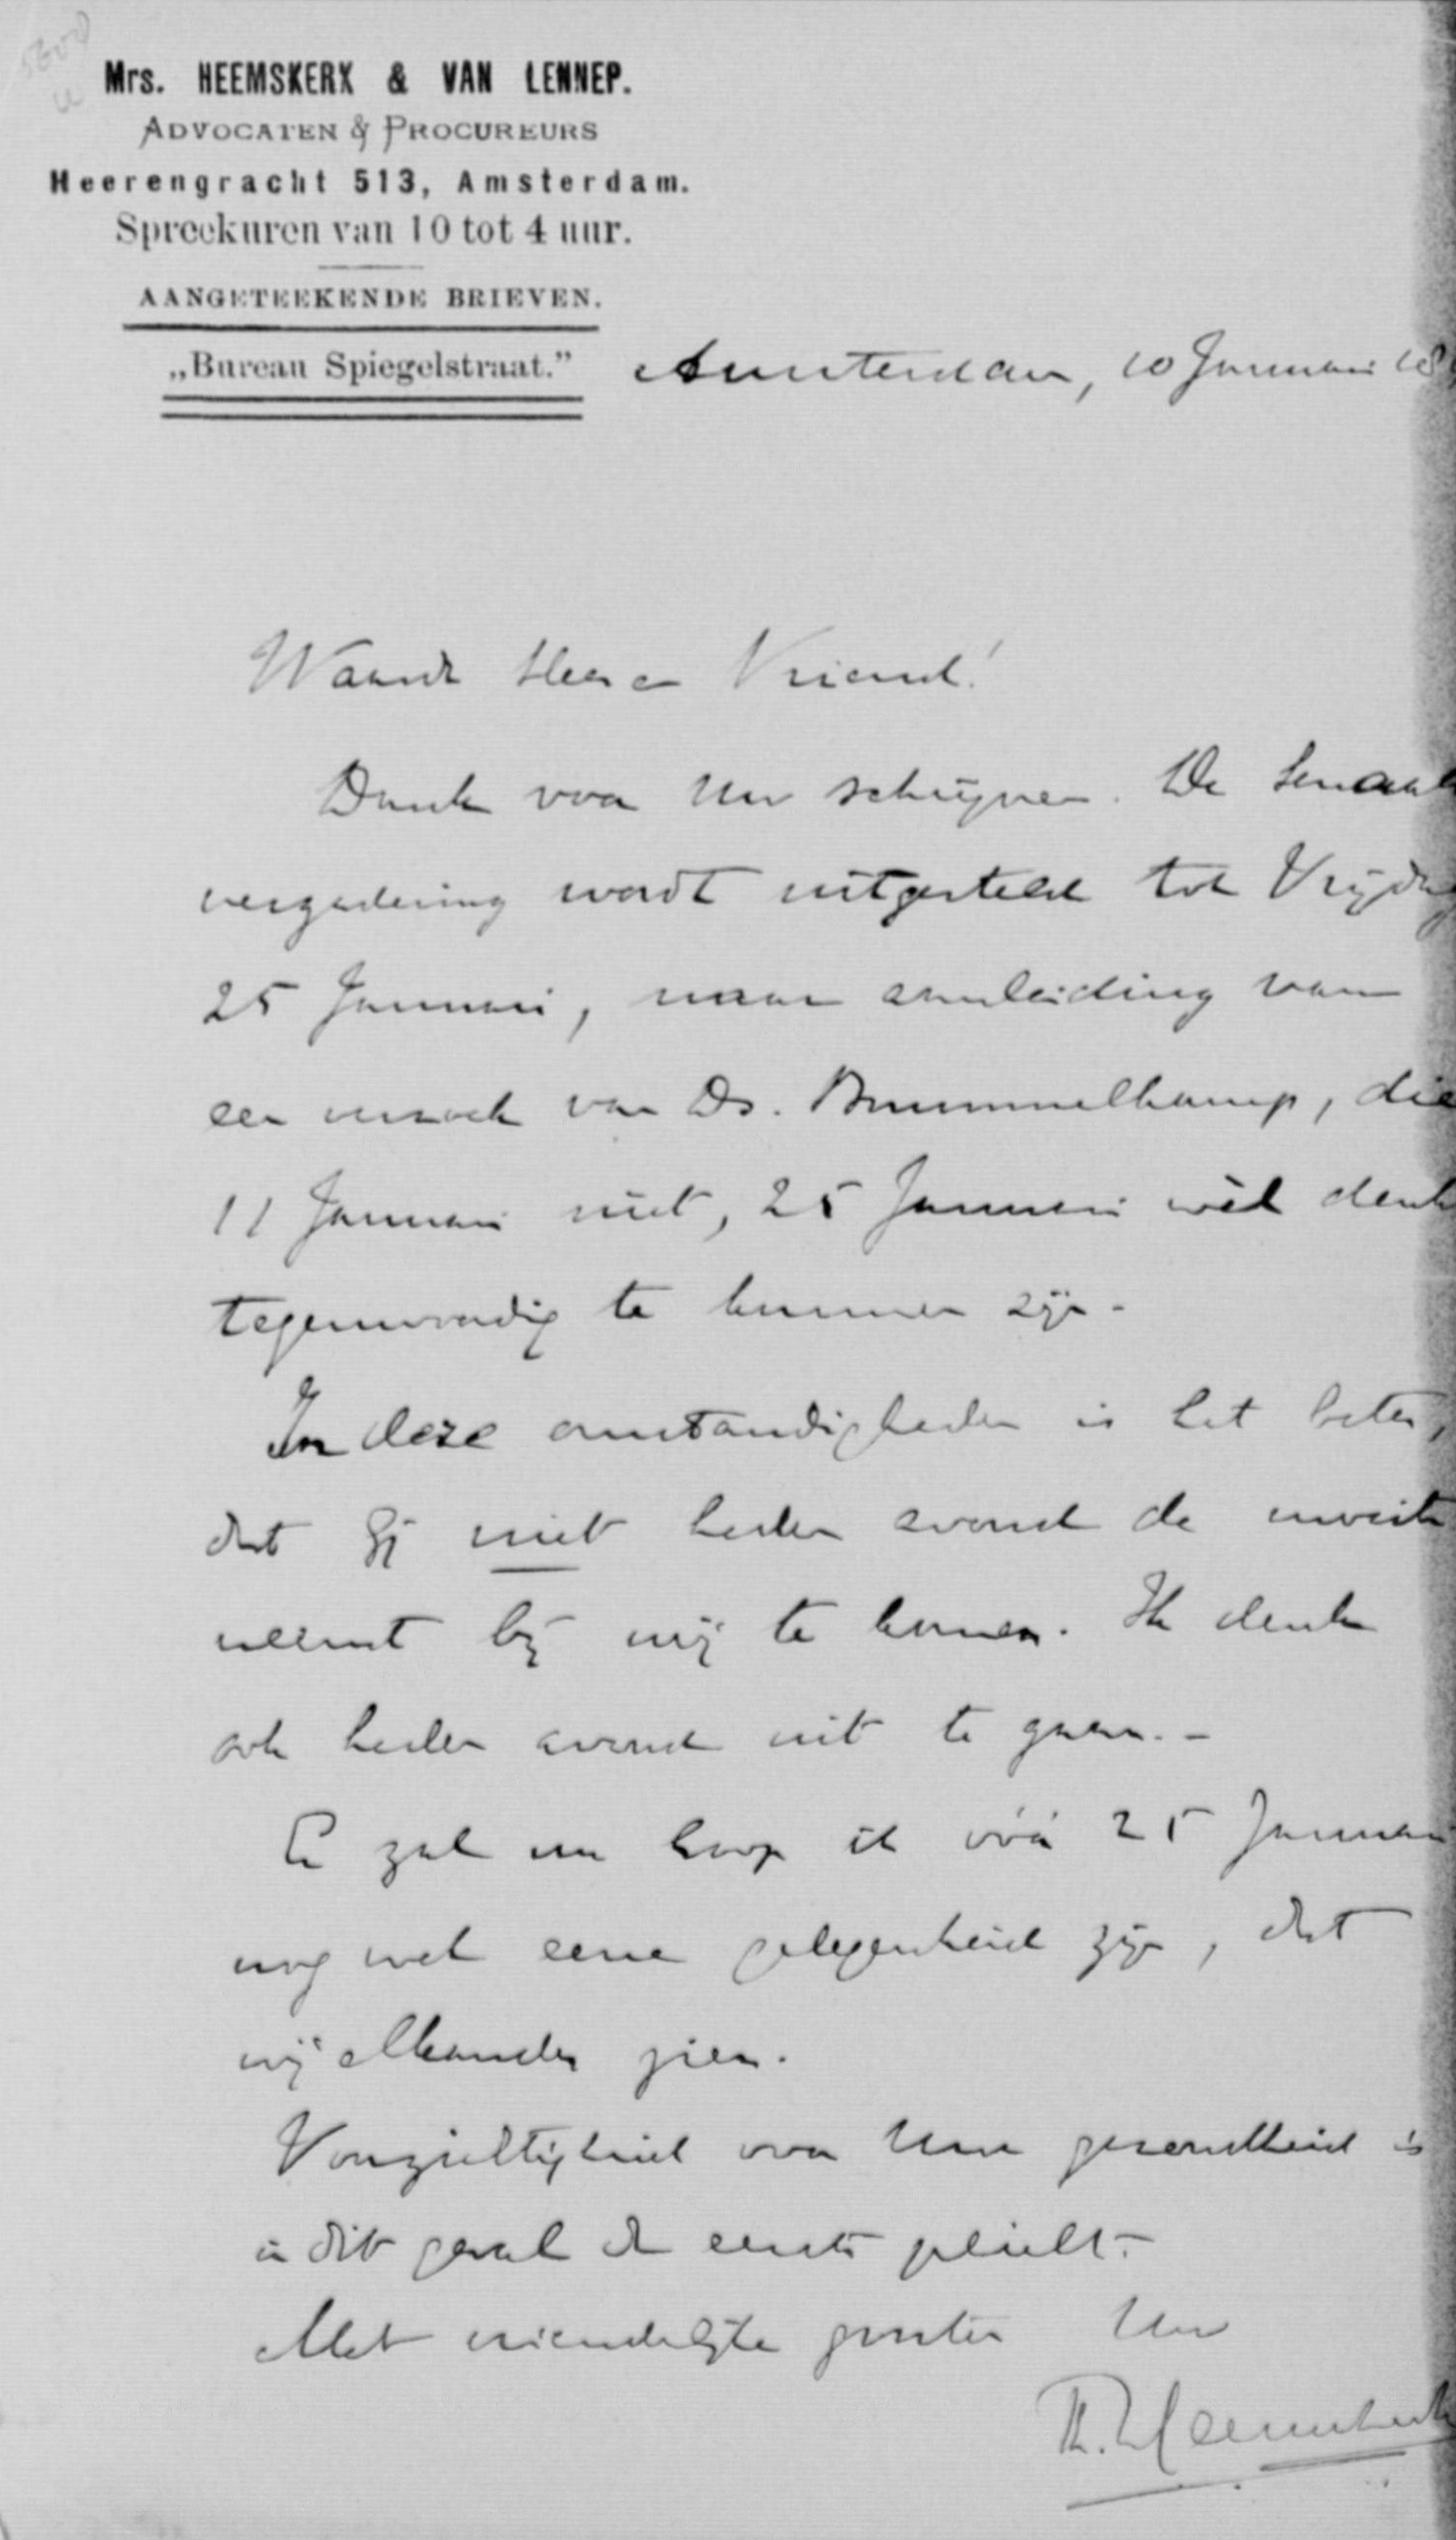 Mrs. HEEMSKERK & VAN LENNEP.
ADVOCATEN & PROCUREURS
Heerengracht 513, Amsterdam.
Spreekuren van 10 tot 4 uur.
AANGETEEKENDE BRIEVEN.
„Bureau Spiegelstraat.”
Amsterdam, 10 Januari 18
Waarde Heer en Vriend!
Dank voor Uw schrijven. De Senaats
vergadering wordt uitgesteld tot Vrijdag
25 Januari, naar aanleiding van
een verzoek van Ds. Brummelkamp, die
11 Januari niet, 25 Januari wèl denkt
tegenwoordig te kunnen zijn.
In deze omstandigheden is het beter,
dat Gij niet heden avond de moeite
neemt bij mij te komen. Ik denk
ook heden avond uit te gaan. -
Er zal nu hoop ik vóór 25 Januari
nog wel eene gelegenheid zijn, dat
wij elkander zien.
Voorzichtigheid voor Uwe gezondheid is
in dit geval de eerste plicht.
Met vriendelijke groeten Uw
Th. Heemskerk